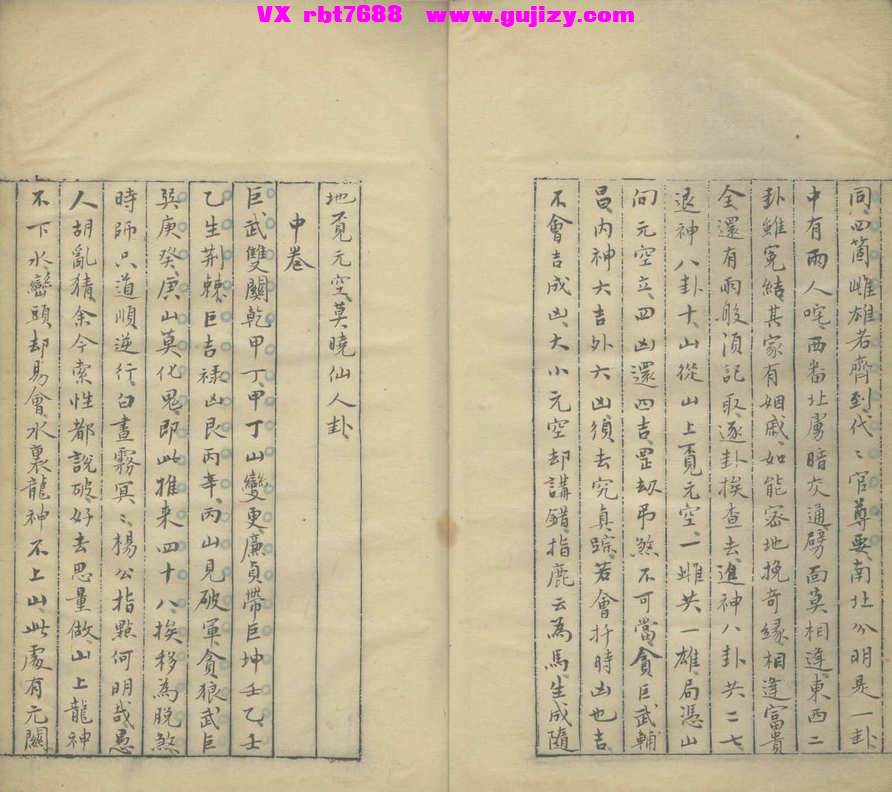 VX rbt7688 www.gujizy.com
同、四箇雌雄若齊到代〻官尊要、南北分明是一卦
中有兩人啼、西畨北虜暗交通、劈面莫相逢、東西二
卦雖冤結其家有姻戚、如能密地挽奇緣相逢富貴
全還有兩般湏記取、逐卦挨查去、進神八卦共二七、
退神八卦十、山從山上覔元空、一雌共一雄、局憑山
向元空立、四凶還四吉、罡刼吊煞不可當、貪巨武輔
昌、内神大吉外六凶須去究真踪、若會扦時凶也吉、
不會吉成凶、大小元空却講錯、指鹿云為馬、生成隨
地覔元空、莫曉仙人卦、
中卷
巨武雙關乾甲丁、甲丁山變更、廉貞帶巨坤壬乙、壬
乙生荆棘、巨吉禄凶艮丙辛、丙山見破軍、貪狼武巨
巽庚癸、庚山莫化鬼、即此推来四十八、挨移為脱煞
時師只道順逆行、白晝霧冥〻、楊公指㸃何明哉、愚
人胡亂猜、余今索性都説破、好去思量做、山上龍神
不下水、巒頭却易會、水裏龍神不上山、此處有元關